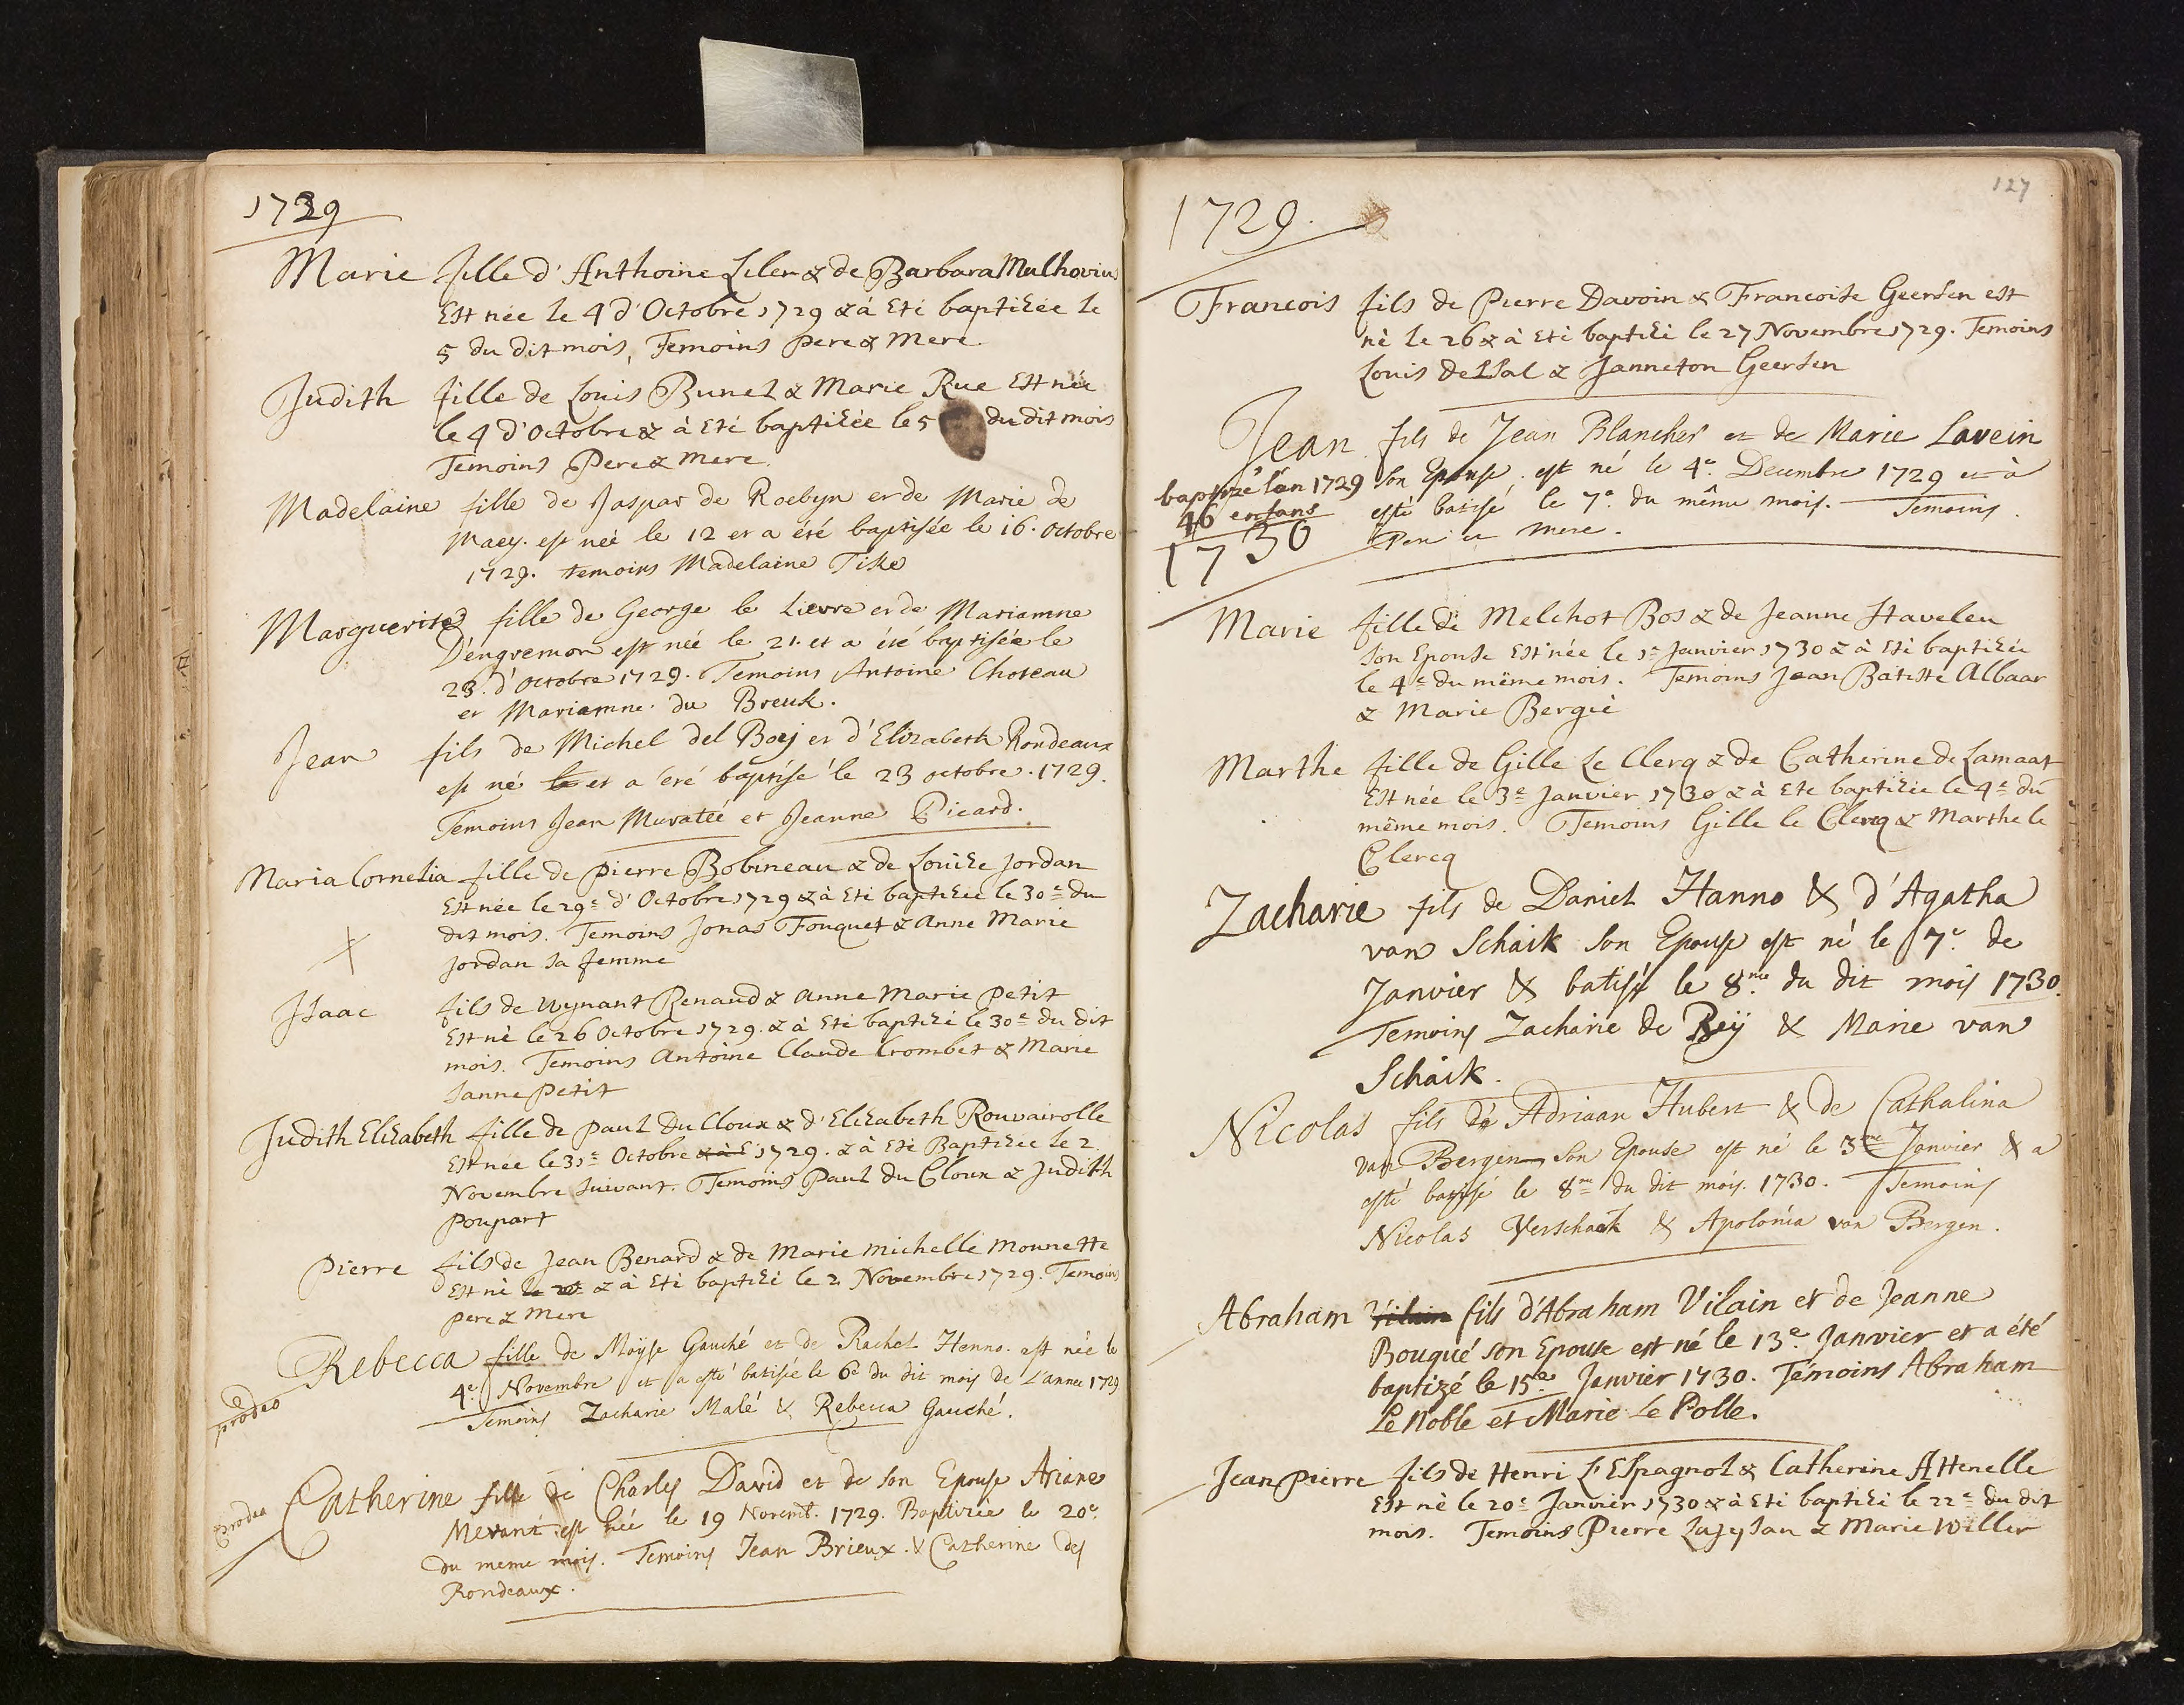 1729
Marie fille d'Anthoine Liler & de Barbara Mulhovius
Est née le 4 d'Octobre 1729 & à Eté baptizée le
5 du dit mois, Temoins Pere & Mere
Judith fille de Louis Bunel & Marie Rue Est née
le 4 d'Octobre & à Eté baptizée le 5 du dit mois
Temoins Pere & Mere
Madelaine fille de Jaspar de Roebyn et de Marie de
Maey. est née le 12 et a été baptisée le 16. Octobre
1729. temoins Madelaine Tike
Marguerite fille de George le Lievre et de Mariamne
Dengremon est née le 21. et a été baptisée le
23. d'Octobre 1729. Temoins Antoine Choteau
et Mariamne du Breuk.
Jean fils de Michel del Boij et d'Elizabeth Rondeaux
est né le et a été baptisé le 23 octobre. 1729.
Temoins Jean Muratée et Jeanne Picard.
Maria Cornelia fille de Pierre Bobineau & de Louize Jordan
Est née le 29e d'Octobre 1729 & à Eté baptizée le 30e du
dit mois. Temoins Jonas Fouquet & Anne Marie
Jordan sa femme
Isaac fils de Wynant Renaud & Anne Marie Petit
Est né le 26 Octobre 1729. & à Eté baptizé le 30e du dit
mois. Temoins Antoine Claude Crombet & Marie
Janne Petit
Judith Elizabeth fille de Paul Du Cloux & d'Elizabeth Rouvairolle
Est née le 31e Octobre & à E 1729. & à Eté Baptizée le 2
Novembre suivant. Temoins Paul du Cloux & Judith
Poupart
Pierre fils de Jean Benard & de Marie Michelle Mounette
Est né le & à Eté baptizé le 2 Novembre 1729. Temoins
pere & Mere
Rebecca fille de Moÿse Gauché et de Rachel Henno. est née le
4e. Novembre et a esté batisée le 6e du dit mois de L'année 1729
prodeo
Temoins Zacharie Malé & Rebecca Gauché.
prodeo
Catherine fille de Charles David et de son Epouse Ariane
Mevant est née le 19 Novemb. 1729. Baptizée le 20e
du meme mois. Temoins Jean Brieux. & Catherine des
Rondeaux.
127
1729.
Francois fils de Pierre Davoin & Francoise Geersen est
né le 26 & à Eté baptizé le 27 Novembre 1729. Temoins
Louis delSal & Janneton Geersen
Jean fils de Jean Blancher et de Marie Lavein
baptizé l'an 1729
46 enfans
son Epouse, est né le 4e. Decembre 1729 et à
esté batisé le 7e. du même mois. Temoins.
Pere et mere.
1730
Marie fille de Melchot Bos & de Jeanne Havelen
son Epouse Est née le 1e Janvier 1730 & à Eté baptizée
le 4e du même mois. Temoins Jean Batiste Albaar
& Marie Bergié
Marthe fille de Gille Le Clerq & de Catherine de Lamaat
Est née le 3e Janvier 1730 & à Ete baptizée le 4e du
même mois. Temoins Gille le Clercq & Marthe le
Clercq
Zacharie fils de Daniel Hanno & d'Agatha
van Schaik son Epouse est né le 7e. de
Janvier & batisé le 8me. du dit mois 1730.
Temoins Zacharie de Reÿ & Marie van
Schaik.
Nicolas fils de Adriaan Hubert & de Cathalina
van Bergen son Epouse est né le 3me Janvier & a
esté batisé le 8me du dit mois. 1730. Temoins
Nicolas Verschack & Apolonia van Bergen.
Abraham Vilain fils d'Abraham Vilain et de Jeanne
Bouqué son Epouse est né le 13e. Janvier et a été
baptizé le 15e. Janvier 1730. Témoins Abraham
Le Noble et Marie Le Polle.
Jean Pierre fils de Henri L'Espagnol & Catherine Attenelle
Est né le 20e Janvier 1730 & à Eté baptizé le 22e du dit
mois. Temoins Pierre Lajysan & Marie Willer